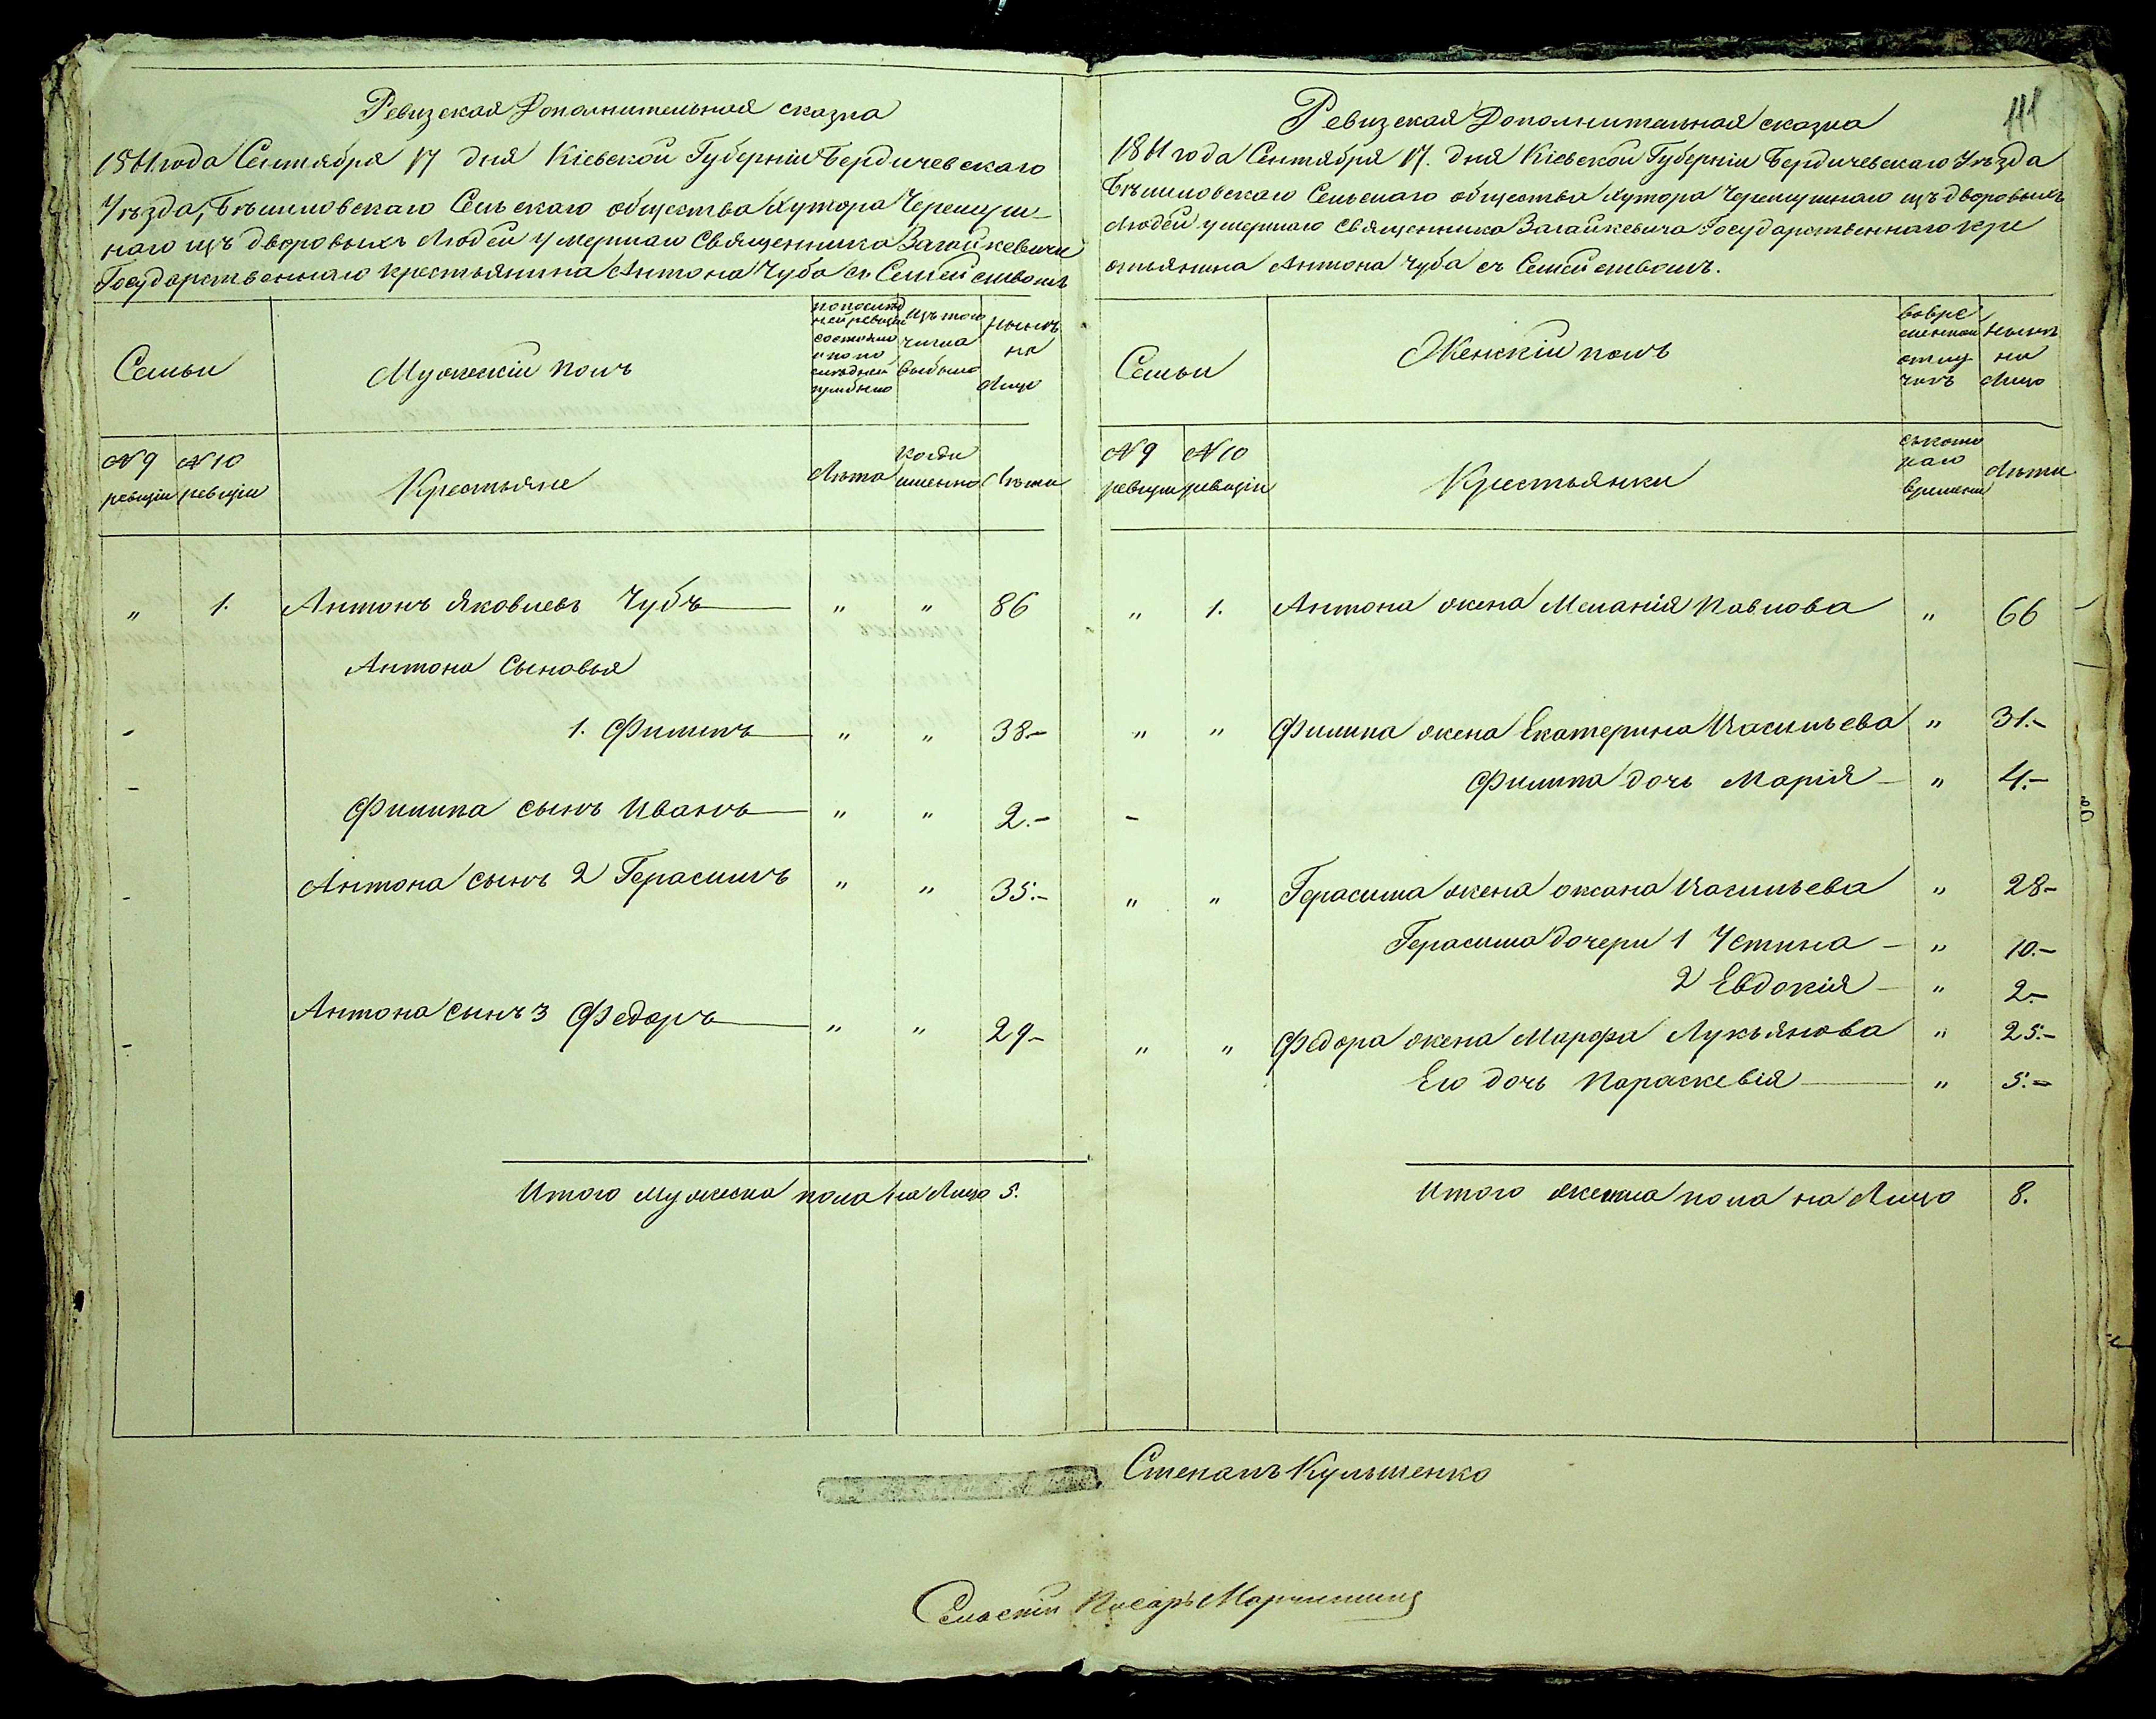 Ревизская Дополнительная сказка
1861 года Сентября 17 дня Кіевской Губерніи Бердичевскаго
Уѣзда, Бѣлиловскаго Сельскаго общества Хутора Черемуш-
наго изъ дворовыхъ Людей умершаго Священника Загайкевича
Государственнаго крестьянина Антона Чуба съ Семействомъ
Семьи
Мужескій полъ
по послѣд
ней ревизіи
состояло
и по
прибыло
Изъ того
числа
выбыло
Нынѣ
на
Лицо
№ 9 ревизіи
№ 10 ревизіи
Крестьяне
Лѣта
когда
именно
Лѣта
" 1. Антонъ Яковлевъ Чубъ " " 86
Антона Сыновья
1. Филипъ " " 38.-
Филипа сынъ Иванъ " " 2.-
Антона сынъ 2 Герасимъ " " 35.-
Антона сынъ 3 Федоръ " " 29-
Итого мужеска пола на Лицо 5.
111
Ревизская Дополнительная сказка
1861 года Сентября 17. дня Кіевской Губерніи Бердичевскаго Уѣзда
Бѣлиловскаго Сельскаго общества Хутора Черемушнаго изъ дворовыхъ
Людей умершаго Священника Загайкевича Государственнаго кре
стьянина Антона Чуба съ Семействомъ.
Семьи
Женскій полъ
во вре
менной
отлу
чкѣ
Нынѣ
на
Лицо
№ 9 ревизіи
№ 10 ревизіи
Крестьянки
съ кото
раго
времени
Лѣта
" 1. Антона жена Меланія Павлова " 66
" " Филипа жена Екатерина Васильева " 31.-
Филипа дочь Марія - " 4.-
" " Герасима жена Оксана Васильева " 28-
Герасима дочери 1 Устина - " 10.-
2 Евдокія - " 2-
" " Федора жена Марфа Лукьянова " 25.-
Его дочь Параскевія " 5.-
Итого женска пола на Лицо 8.
Степанъ Кульшенко
Сельскій Писарь